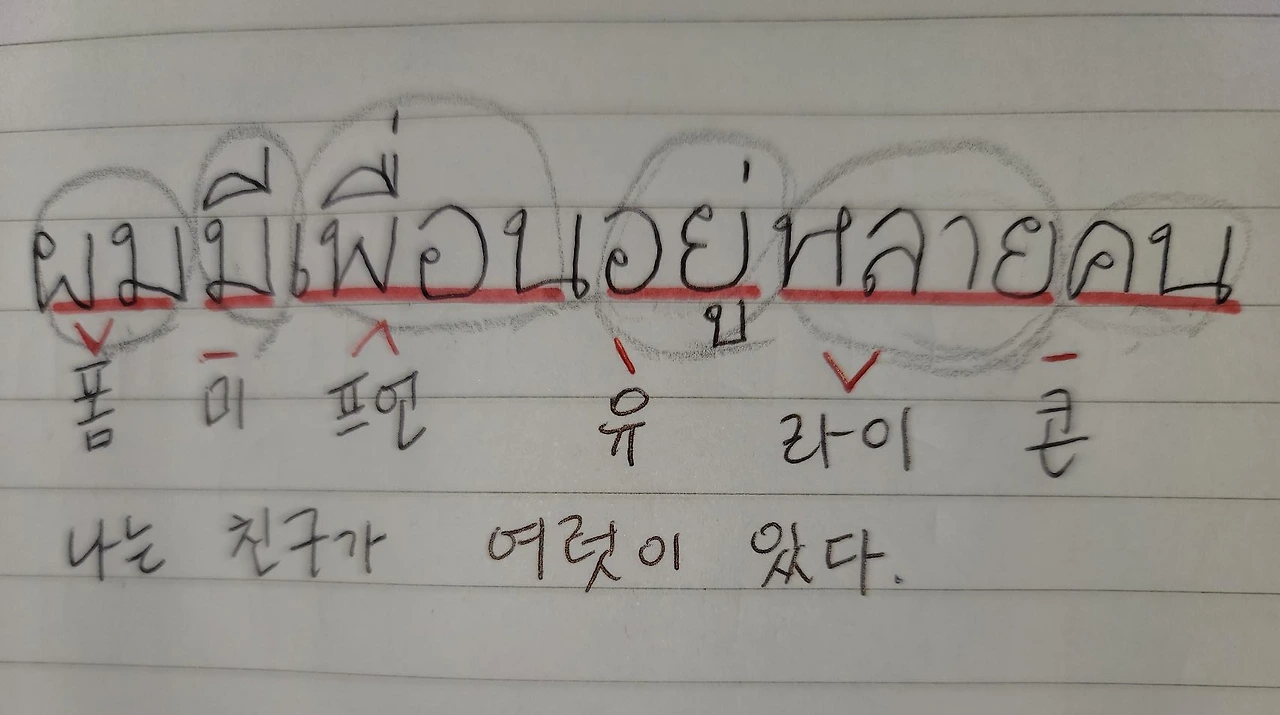 ผมมีเพื่อนอยู่หลายคน
폼 미 프언 유 라이 콘
나는 친구가 여럿이 있다.